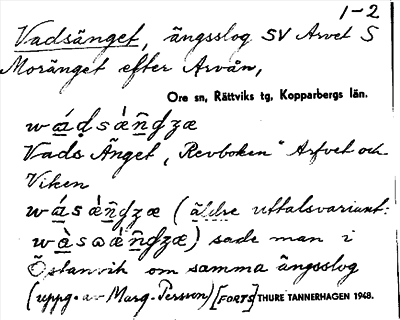 1-2
Vadsänget, ängsslog SV Arvet S
Moränget efter Arvån,
Ore sn, Rättviks tg, Kopparbergs län.
wáḍsæ̀n̄ʤæ
Vads Änget „Revboken" Arfvet och
Viken
wásæ̀n̄ʤæ (äldre uttalsvariant:
wàsaæ̀n̄ʤæ) sade man i
Östanvik om samma ängsslog
(uppg. av Marg. Persson) [FORTS] THURE TANNERHAGEN 1948.